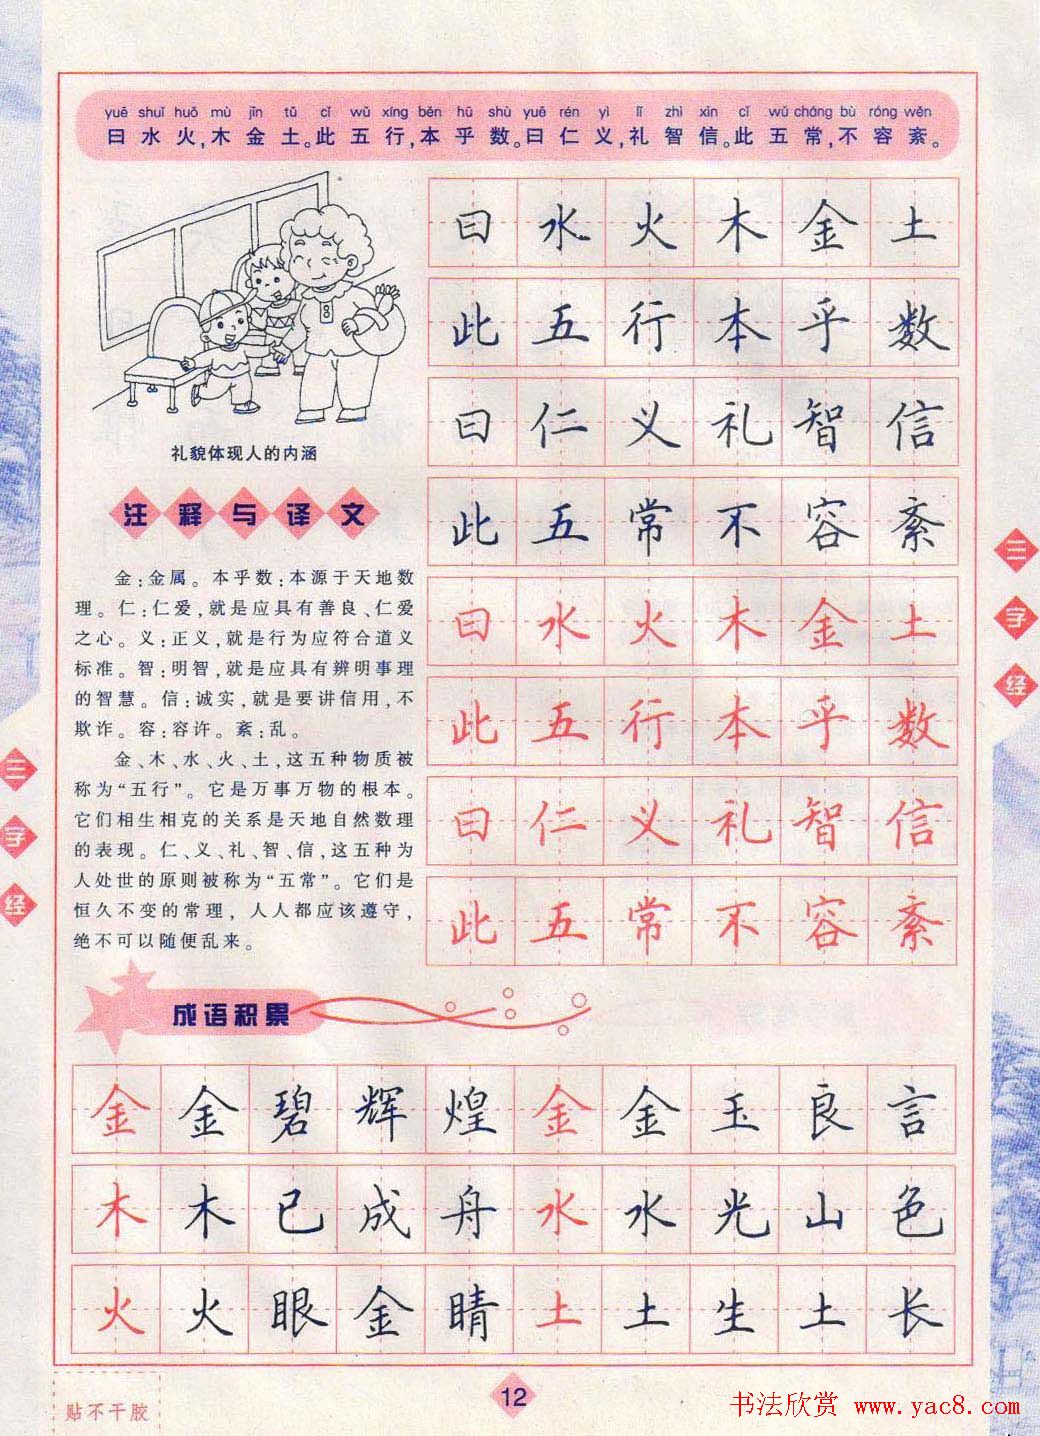 yuē shuǐ huǒ mù jīn tǔ cǐ wǔ xíng běn hū shù yuē rén yì lǐ zhì xìn cǐ wǔ cháng bù róng wěn
曰水火,木金土。此五行,本乎数。曰仁义,礼智信。此五常,不容紊。
礼貌体现人的内涵
注释与译文
金:金属。本乎数:本源于天地数
理。仁:仁爱,就是应具有善良、仁爱
之心。义:正义,就是行为应符合道义
标准。智:明智,就是应具有辨明事理
的智慧。信:诚实,就是要讲信用,不
欺诈。容:容许。紊:乱。
金、木、水、火、土,这五种物质被
称为“五行”。它是万事万物的根本。
它们相生相克的关系是天地自然数理
的表现。仁、义、礼、智、信,这五种为
人处世的原则被称为“五常”。它们是
恒久不变的常理,人人都应该遵守,
绝不可以随便乱来。
曰水火木金土
此五行本乎数
曰仁义礼智信
此五常不容紊
曰水火木金土
此五行本乎数
曰仁义礼智信
此五常不容紊
三字经
三字经
成语积累
金金碧辉煌金金玉良言
木木已成舟水水光山色
火火眼金睛土土生土长
贴不干胶
12
书法欣赏 www.yac8.com